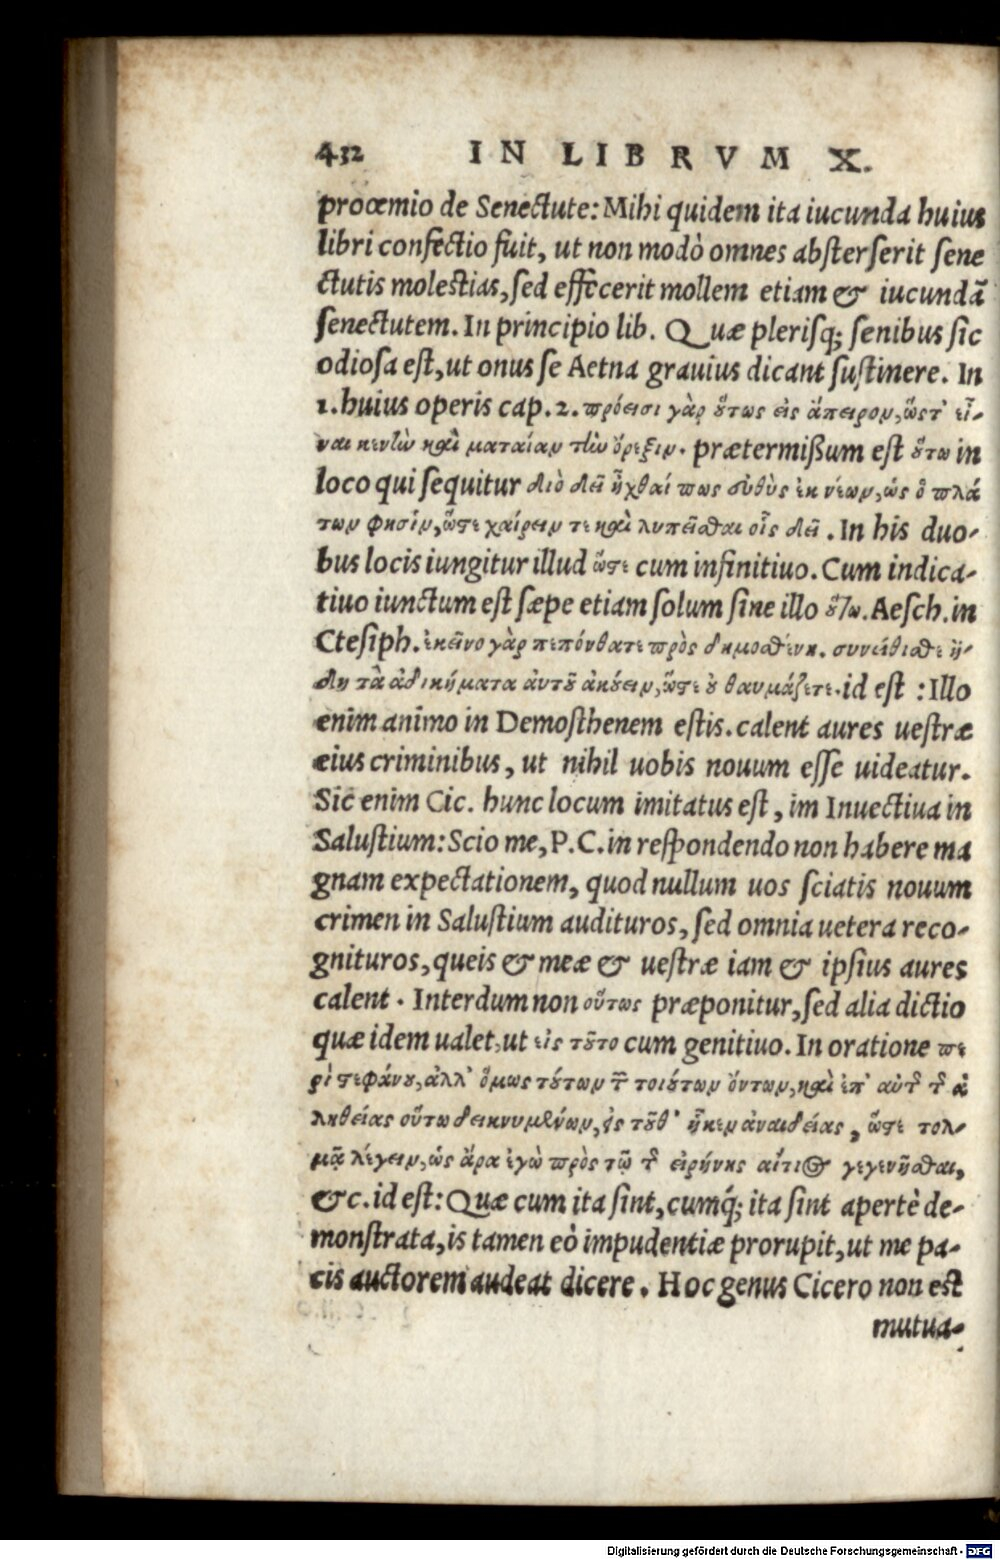 432 IN LIBRVM X.
proœmio de Senectute: Mihi quidem ita iucunda huius
libri confectio fuit, ut non modò omnes absterserit sene
ctutis molestias, sed effecerit mollem etiam & iucundã
senectutem. In principio lib. Quæ plerisq; senibus sic
odiosa est, ut onus se Aetna grauius dicant sustinere. In
1. huius operis cap. 2. πρόεισι γὰρ ὅτως εἰς ἄπειρον, ὥστ' εἶ-
ναι κενὴν καὶ ματαίαν τὴν ὄρεξιν. prætermißum est ὅτω in
loco qui sequitur διὸ δεῖ ἦχθαί πως εὐθὺς ἐκ νέων, ὡς ὁ πλά
των φησὶν, ὥστε χαίρειν τε καὶ λυπεῖσθαι οἷς δεῖ. In his duo-
bus locis iungitur illud ὥστε cum infinitiuo. Cum indica-
tiuo iunctum est sæpe etiam solum sine illo ὅτω. Aesch. in
Ctesiph. ἐκεῖνο γὰρ πεπόνθατε πρὸς δημοσθένη. συνείθισθε ἤ-
δη τὰ ἀδικήματα αὐτοῦ ἀκούειν, ὥστε οὐ θαυμάζετε. id est : Illo
enim animo in Demosthenem estis. calent aures uestræ
eius criminibus, ut nihil uobis nouum esse uideatur.
Sic enim Cic. hunc locum imitatus est, im Inuectiua in
Salustium: Scio me, P. C. in respondendo non habere ma
gnam expectationem, quod nullum uos sciatis nouum
crimen in Salustium audituros, sed omnia uetera reco-
gnituros, queis & meæ & uestræ iam & ipsius aures
calent. Interdum non οὕτως præponitur, sed alia dictio
quæ idem ualet, ut εἰς τοῦτο cum genitiuo. In oratione πε
ρὶ στεφάνου, ἀλλ' ὅμως τούτων τῶν τοιούτων ὄντων, καὶ ἐπ' αὐτῆς τῆς ἀ
ληθείας οὕτω δεικνυμένων, εἰς τοῦθ' ἧκεν ἀναιδείας, ὥστε τολ-
μᾷ λέγειν, ὡς ἄρα ἐγὼ πρὸς τῷ τῆς εἰρήνης αἴτιος γεγενῆσθαι,
&c. id est: Quæ cum ita sint, cumq́; ita sint apertè de-
monstrata, is tamen eò impudentiæ prorupit, ut me pa-
cis auctorem audeat dicere. Hoc genus Cicero non est
mutua-
Digitalisierung gefördert durch die Deutsche Forschungsgemeinschaft - DFG